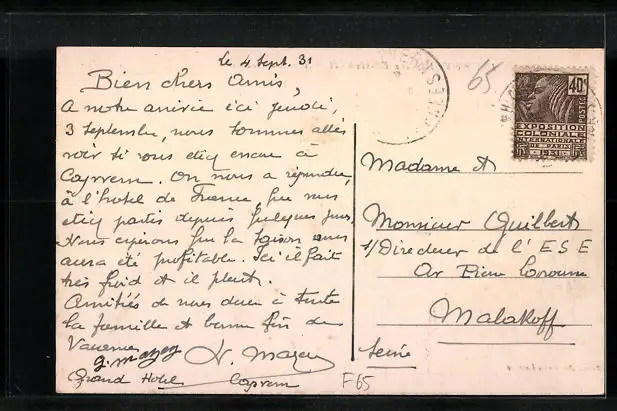 le 4 Sept. 31
Bien chers Amis,
A notre arrivée ici jeudi,
3 Septembre, nous sommes allés
voir si vous étiez encore à
Capvern. On nous a répondu,
à l'hotel de France, que vous
étiez partis depuis quelques jours.
Nous espérons que la saison vous
aura été profitable. Ici il fait
très froid et il pleut.
Amitiés de nous deux à toute
la famille et bonne fin de
Vacances
Grand Hotel Capvern
65
40c
POSTES
EXPOSITION
COLONIALE
INTERNATIONALE
DE PARIS
1931
Madame et
Monsieur Guilbert
s/Directeur de l'ESE
Av Pierre Larousse
Malakoff
Seine
F65